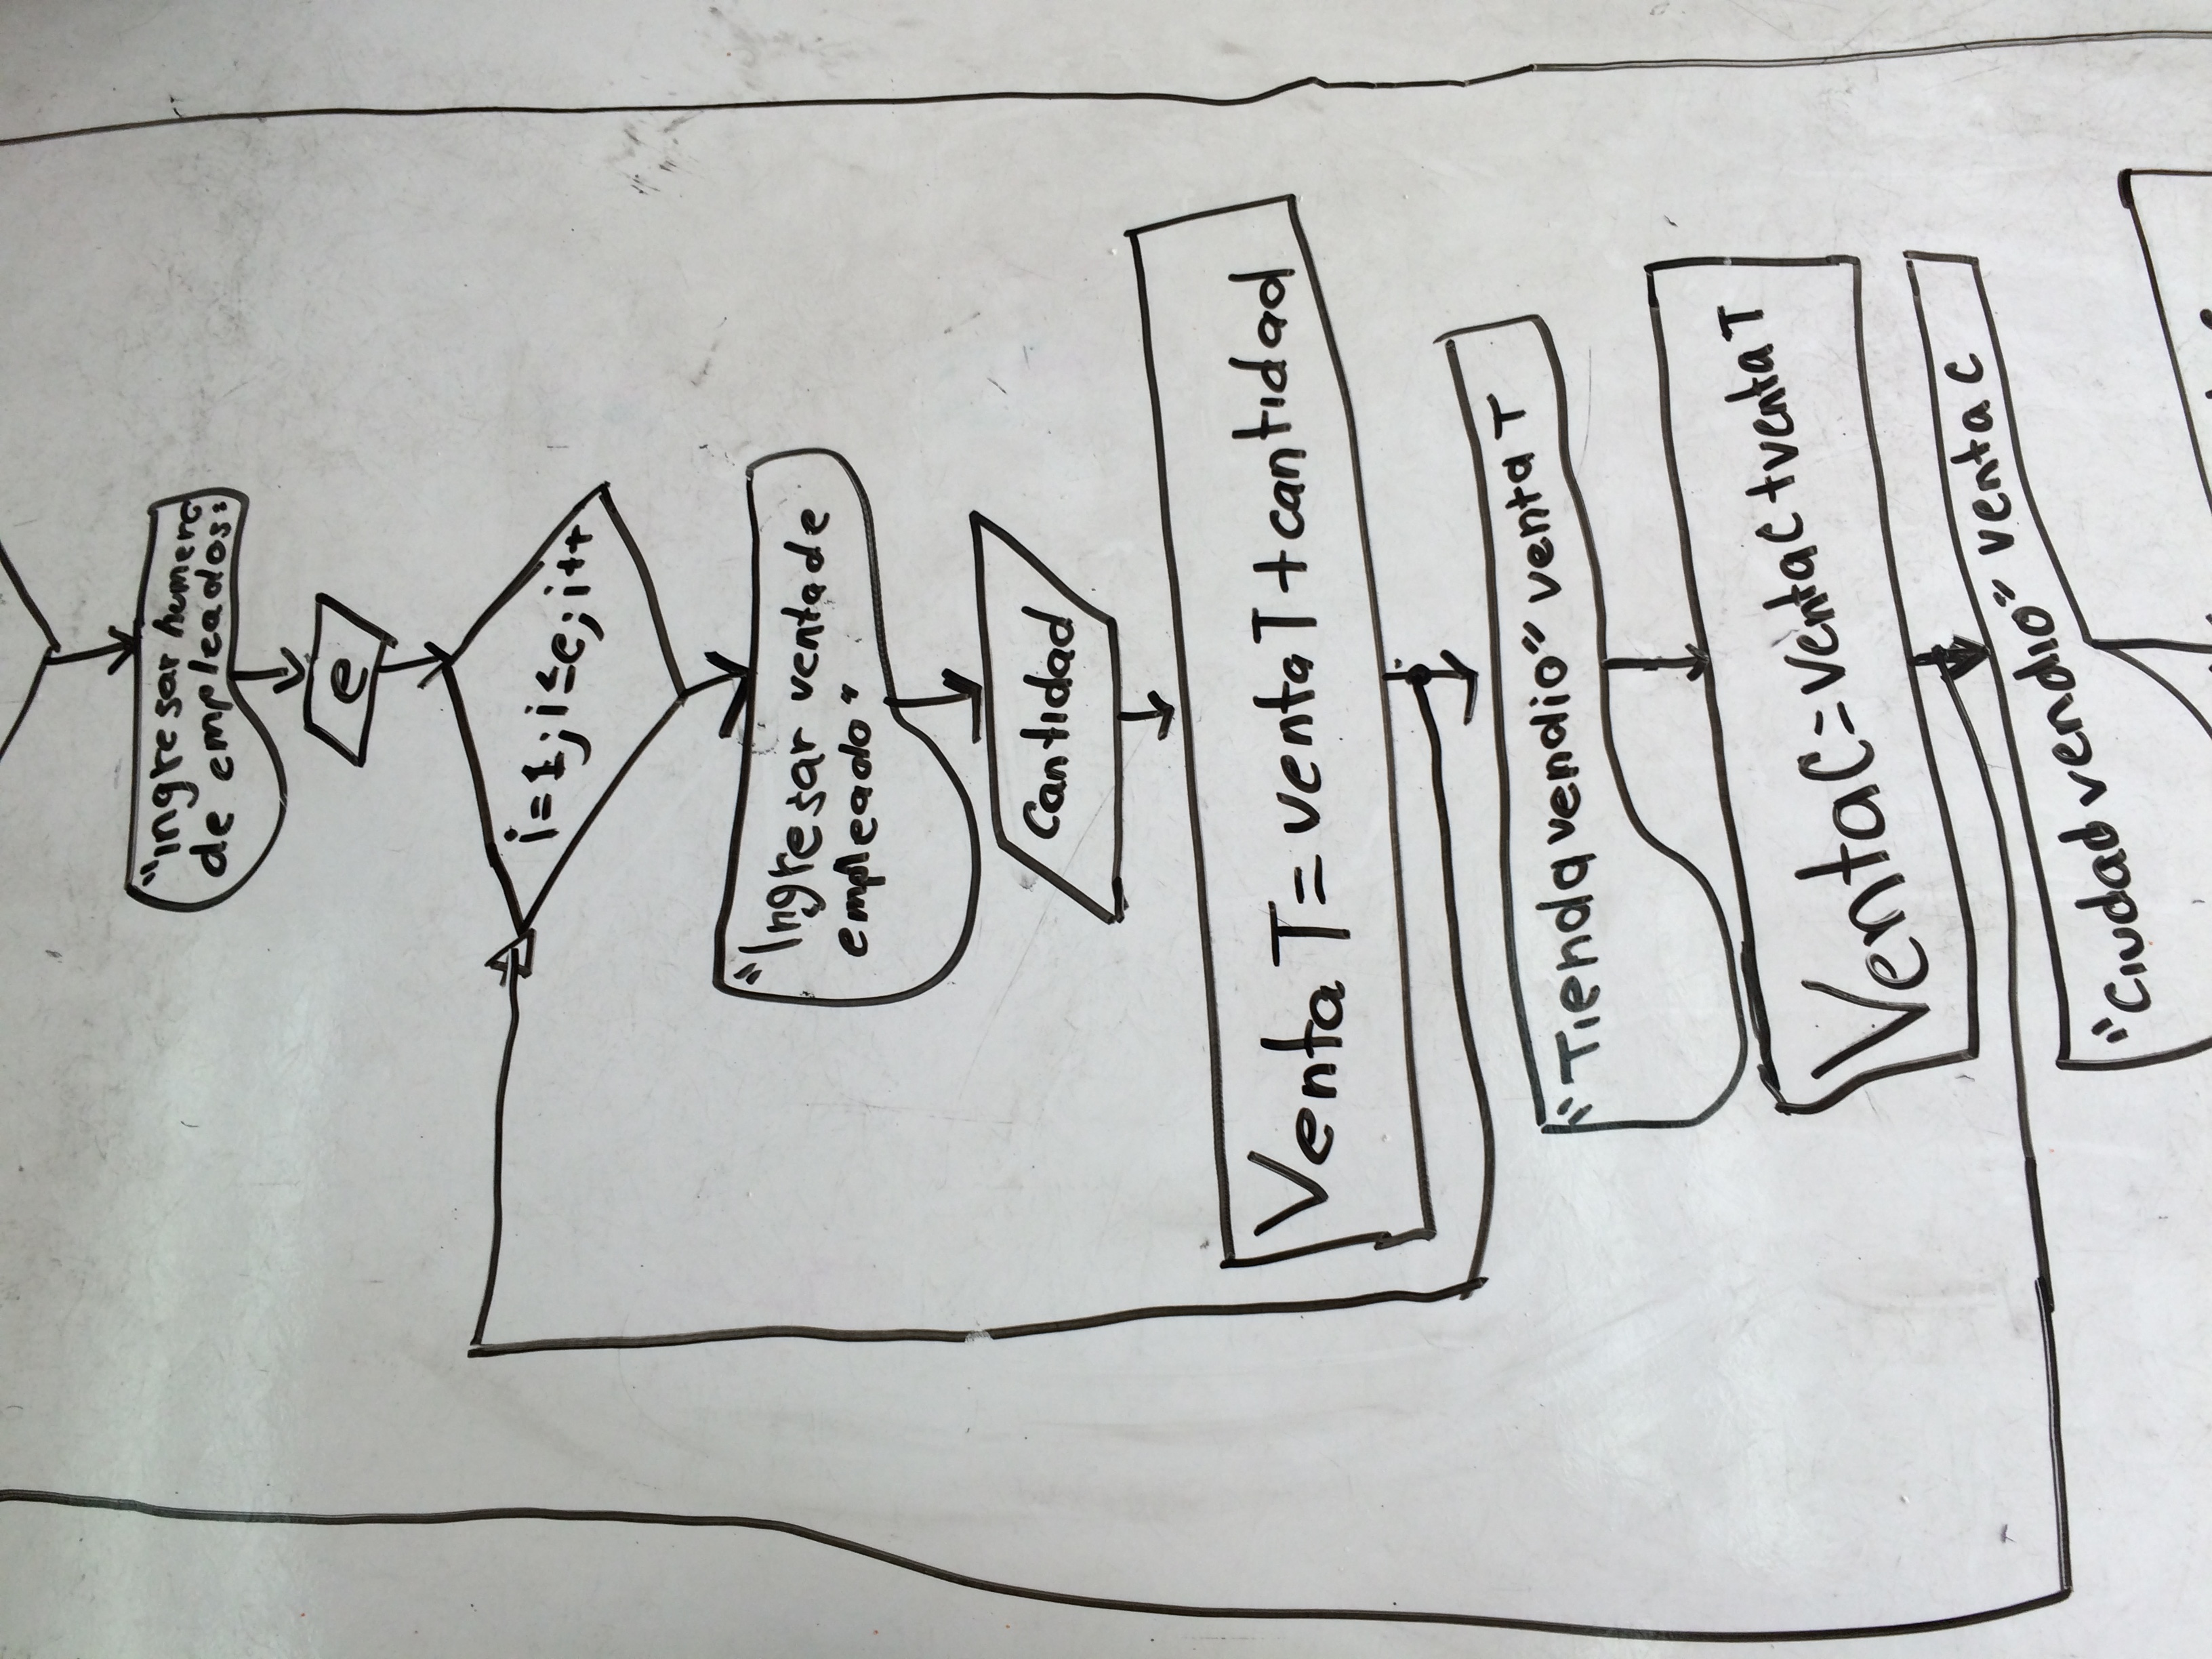 "Ingresar numero
de empleados:
e
i=1; i≤e; i++
"Ingresar venta de
empleado"
Cantidad
Venta T = venta T + cantidad
"Tienda vendio" venta T
Venta C = venta C + venta T
"Ciudad vendio" venta C